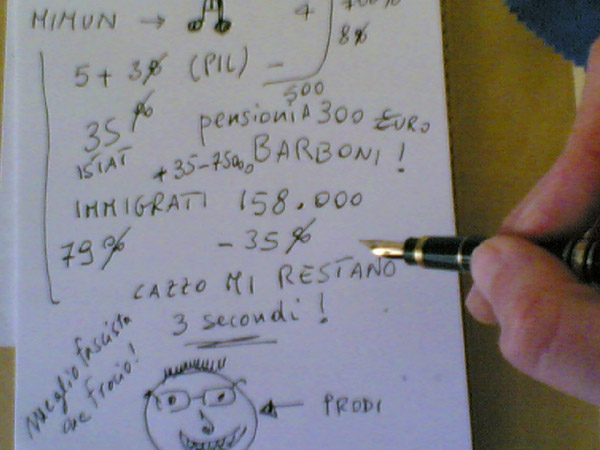 MIMUN →
4
8%
5 + 3% (PIL) -
500
35 %
pensioni A 300 EURO
ISTAT
+35-75000 BARBONI !
IMMIGRATI 158.000
79% - 35%
CAZZO MI RESTANO
3 secondi !
Meglio fascista
che frocio!
← PRODI